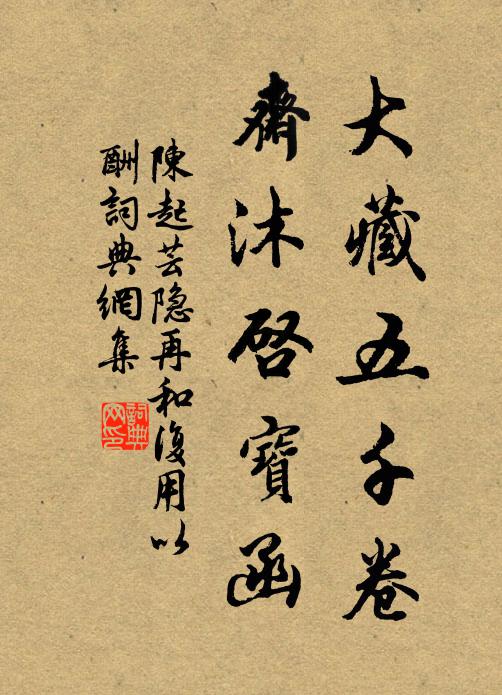 大藏五千卷
齋沐啓寶函
陳起芸隐再和復用以
酬詞典網集
詞典
网印